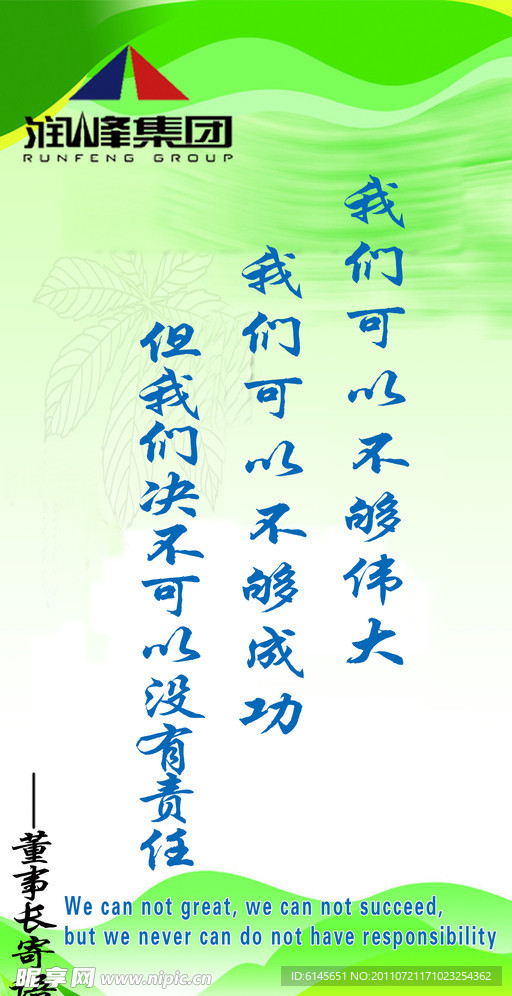 润峰集团
RUNFENG GROUP
我们可以不够伟大
我们可以不够成功
但我们决不可以没有责任
——董事长寄语
We can not great, we can not succeed,
but we never can do not have responsibility
昵享网 www.nipic.cn
ID:6145651 NO:20110721171023254362